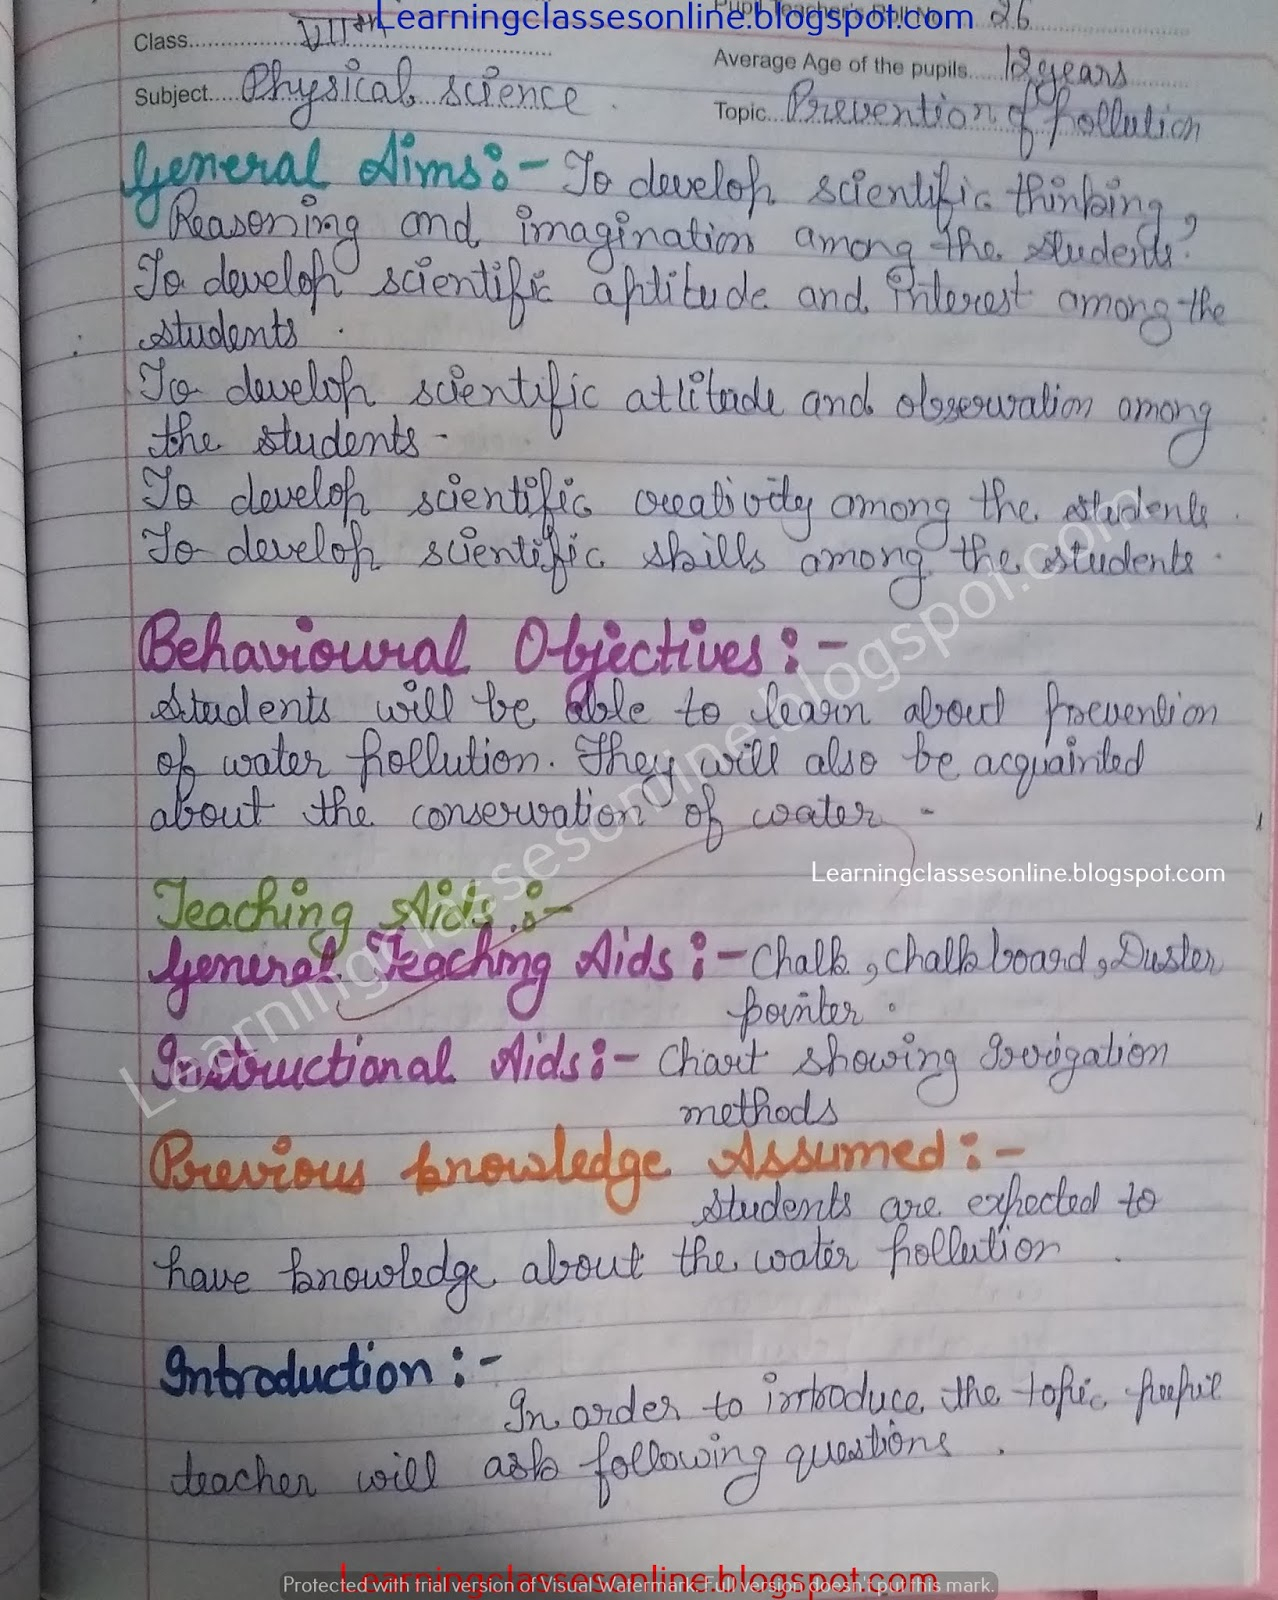 Learningclassesonline.blogspot.com
Pupil Teacher's Roll No. 26
Class VIIth
Average Age of the pupils 12 years
Subject Physical science
Topic Prevention of pollution
General Aims:- To develop scientific thinking,
Reasoning and imagination among the students.
To develop scientific aptitude and interest among the
students.
To develop scientific attitude and observation among
the students.
To develop scientific creativity among the students.
To develop scientific skills among the students.
Behavioural Objectives:-
Students will be able to learn about prevention
of water pollution. They will also be acquainted
about the conservation of water.
Learningclassesonline.blogspot.com
Learningclassesonline.blogspot.com
Teaching Aids:-
General Teaching Aids:- Chalk, chalkboard, Duster
pointer.
Instructional Aids:- Chart showing Irrigation
methods
Previous knowledge Assumed:-
Students are expected to
have knowledge about the water pollution.
Introduction:-
In order to introduce the topic pupil
teacher will ask following questions.
Learningclassesonline.blogspot.com
Protected with trial version of Visual Watermark. Full version doesn't put this mark.